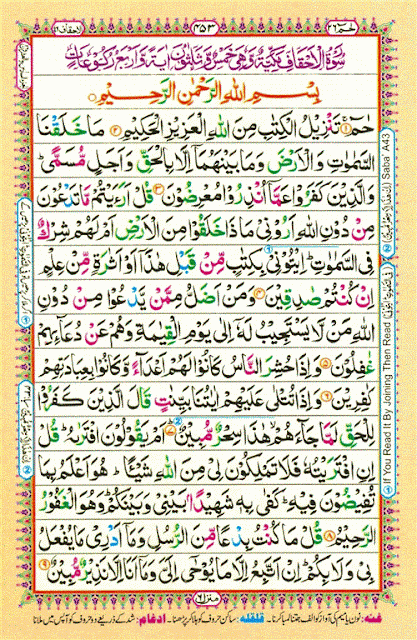 حٰمٓ ٢٦
٤٥٣
الاحقاف ٤٦
سُوْرَةُ الْاَحْقَافِ مَكِّيَّةٌ وَّهِىَ خَمْسٌ وَّثَلٰثُوْنَ اٰيَةً وَّاَرْبَعُ رُكُوْعَاتٍ
بِسْمِ اللّٰهِ الرَّحْمٰنِ الرَّحِيْمِ
حٰمٓ ۚ‏﴿۱﴾ تَنْزِيْلُ الْكِتٰبِ مِنَ اللّٰهِ الْعَزِيْزِ الْحَكِيْمِ ﴿۲﴾ مَا خَلَقْنَا
السَّمٰوٰتِ وَالْاَرْضَ وَمَا بَيْنَهُمَاۤ اِلَّا بِالْحَقِّ وَاَجَلٍ مُّسَمًّى ؕ
وَالَّذِيْنَ كَفَرُوْا عَمَّاۤ اُنْذِرُوْا مُعْرِضُوْنَ ﴿۳﴾ قُلْ اَرَءَيْتُمْ مَّا تَدْعُوْنَ
مِنْ دُوْنِ اللّٰهِ اَرُوْنِىْ مَاذَا خَلَقُوْا مِنَ الْاَرْضِ اَمْ لَهُمْ شِرْكٌ
فِى السَّمٰوٰتِ ؕ اِیْتُوْنِىْ بِكِتٰبٍ مِّنْ قَبْلِ هٰذَاۤ اَوْ اَثٰرَةٍ مِّنْ عِلْمٍ
اِنْ كُنْتُمْ صٰدِقِيْنَ ﴿۴﴾ وَمَنْ اَضَلُّ مِمَّنْ يَّدْعُوْا مِنْ دُوْنِ
اللّٰهِ مَنْ لَّا يَسْتَجِيْبُ لَهٗۤ اِلٰى يَوْمِ الْقِيٰمَةِ وَهُمْ عَنْ دُعَآئِهِمْ
غٰفِلُوْنَ ﴿۵﴾ وَاِذَا حُشِرَ النَّاسُ كَانُوْا لَهُمْ اَعْدَآءً وَّكَانُوْا بِعِبَادَتِهِمْ
كٰفِرِيْنَ ﴿۶﴾ وَاِذَا تُتْلٰى عَلَيْهِمْ اٰيٰتُنَا بَيِّنٰتٍ قَالَ الَّذِيْنَ كَفَرُوْا
لِلْحَقِّ لَمَّا جَآءَهُمْ ۙ هٰذَا سِحْرٌ مُّبِيْنٌ ؕ‏﴿۷﴾ اَمْ يَقُوْلُوْنَ افْتَرٰٮهُ ؕ قُلْ
اِنِ افْتَرَيْتُهٗ فَلَا تَمْلِكُوْنَ لِىْ مِنَ اللّٰهِ شَيْئًا ؕ هُوَ اَعْلَمُ بِمَا
تُفِيْضُوْنَ فِيْهِ ؕ كَفٰى بِهٖ شَهِيْدًاۢ بَيْنِىْ وَبَيْنَكُمْ ؕ وَهُوَ الْغَفُوْرُ
الرَّحِيْمُ ﴿۸﴾ قُلْ مَا كُنْتُ بِدْعًا مِّنَ الرُّسُلِ وَمَاۤ اَدْرِىْ مَا يُفْعَلُ
بِىْ وَلَا بِكُمْ ؕ اِنْ اَتَّبِعُ اِلَّا مَا يُوْحٰٓى اِلَىَّ وَمَاۤ اَنَا اِلَّا نَذِيْرٌ مُّبِيْنٌ ﴿۹﴾
منزل ٦
غنه: نون یا میم کی آواز کو الف جتنا لمبا کرنا۔ قلقله: ساکن حروف کو ہلا کر پڑھنا۔ ادغام: شد کے ذریعے دو حروف کو آپس میں ملانا
Saba' A43
If You Read It By Joining Then Read